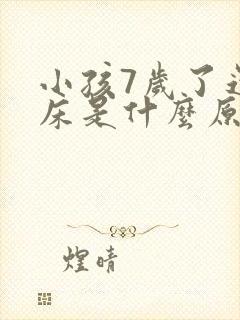 小孩7歲了
床是什麼原
煌晴